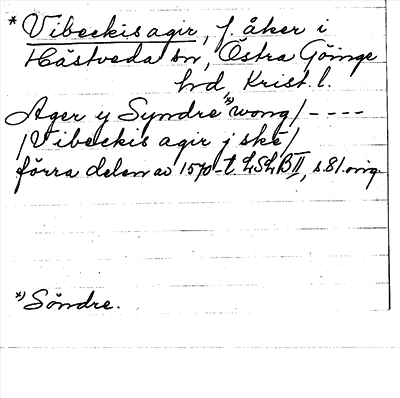 * Vibeckis agir, f. åker i
Hästveda sn, Östra Göinge
hd, Krist. l.
Ager y Syndre *) wong / ----
/ Vibeckis agir j ske /
förra delen av 1570-t. LSLB II, s. 81. orig.
*) Söndre.